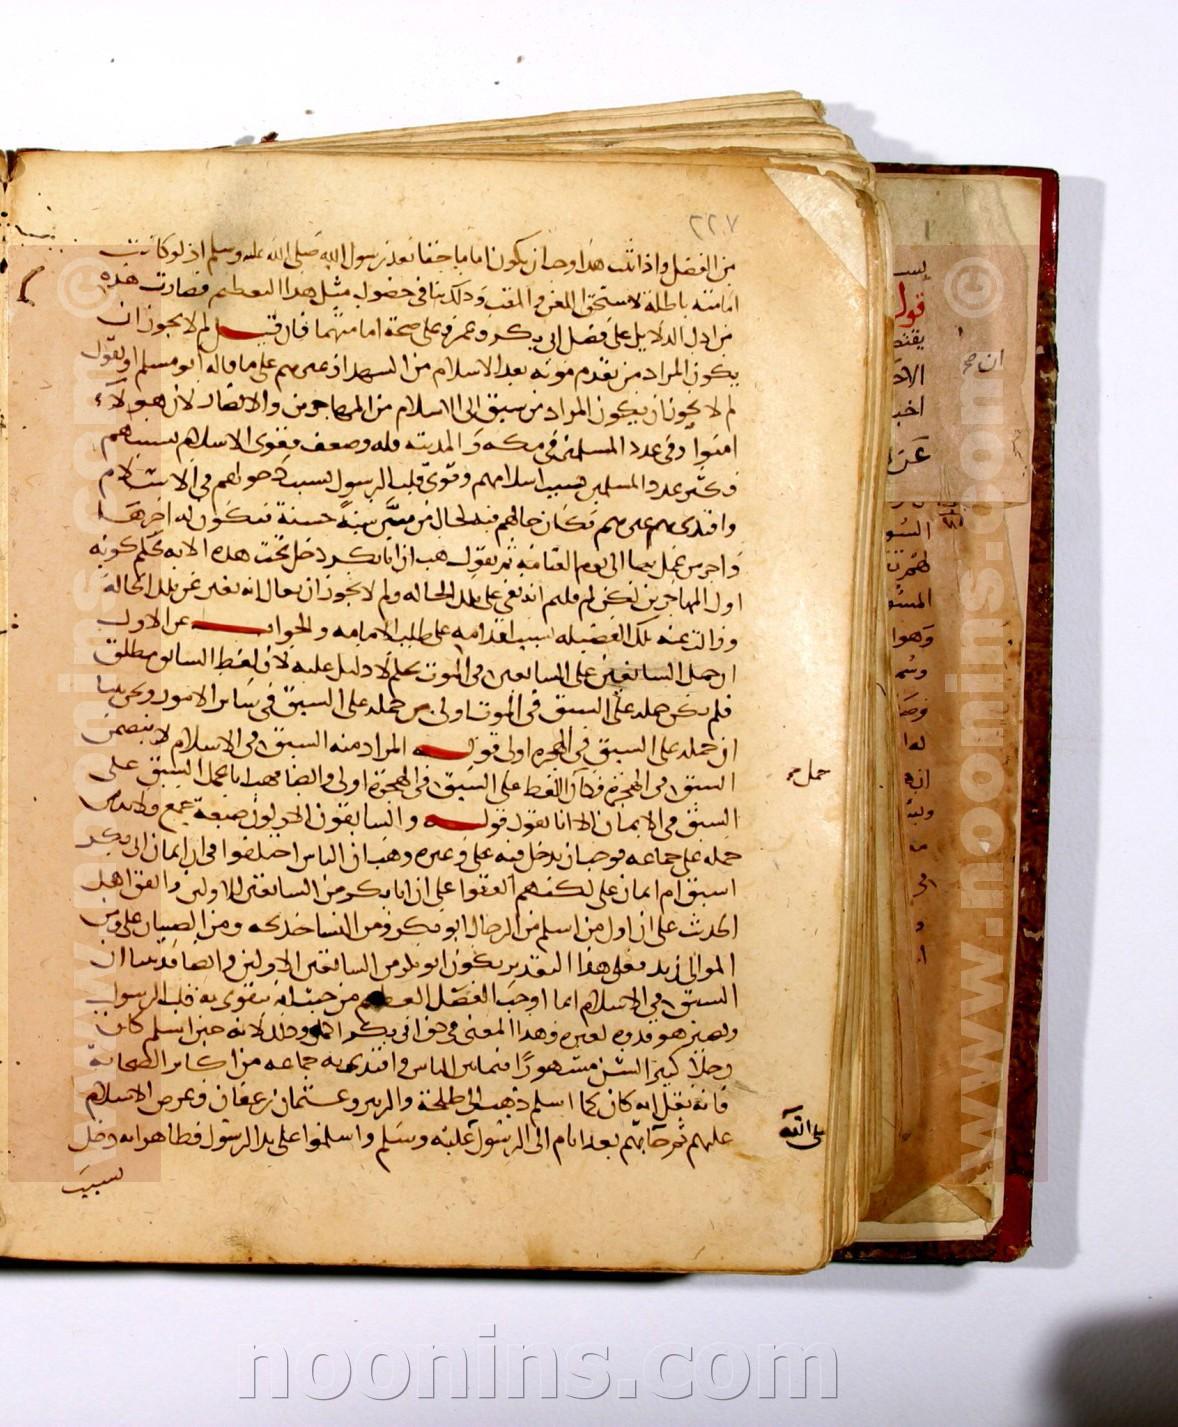 ٢٢٧
من الفضل واذا ثبت هذا وجب ان يكون اماما حقا بعد رسول الله صلى الله عليه وسلم اذ لو كانت
امامته باطلة لاستحق اللعن والمقت وذلك ينافى حصول مثل هذا التعظيم فصارت هذه
من ادل الدلايل على فضل ابى بكر وعمر وعلى صحة امامتهما فان قيل لم لا يجوز ان
يكون المراد من تقدم موته بعد الاسلام من الشهدا وغيرهم على ما قاله ابو مسلم او نقول
لم لا يجوز ان يكون المراد من سبق الى الاسلام من المهاجرين والانصار لان هولاء
امنوا وفى عدد المسلمين فى مكه والمدينه قله وضعف فقوى الاسلام بسببهم
وكثر عدد المسلمين بسبب اسلامهم وقوى قلب الرسول بسبب دخولهم فى الاسلام
واقتدى بهم غيرهم فكان حالهم فيه كحال من سن سنة حسنة فيكون له اجرها
واجر من عمل بها الى يوم القيامة ثم نقول هب ان ابا بكر دخل تحت هذه الايه بحكم كونه
اول المهاجرين لكن لم قلتم انه بقى على تلك الحاله ولم لا يجوز ان يقال انه تغير عن تلك الحالة
وزالت عنه تلك الفضيله بسبب اقدامه على طلب الامامه والجواب عن الاول
ان حمل السابقين على السابقين فى الموت تحكم لا دليل عليه لان لفظ السابق مطلق
فلم يكن حمله على السبق فى الموت اولى من حمله على السبق فى ساير الامور ونحن بينا
ان حمله على السبق فى الهجره اولى قوله المراد منه السبق فى الاسلام لا يتضمن
السبق فى الهجرة فكان اللفظ على السبق فى الهجرة اولى وايضا فهب انا نحمل السبق على
السبق فى الايمان الا انا نقول قوله والسابقون الاولون صيغة جمع ولا بد من
حمله على جماعه فوجب ان يدخل فيه على وغيره وهب ان الناس اختلفوا فى ان ايمان ابى بكر
اسبق ام ايمان على لكنهم اتفقوا على ان ابا بكر من السابقين الاولين واتفق اهل
الحديث على ان اول من اسلم من الرجال ابو بكر ومن النسا خديجه ومن الصبيان على ومن
الموالى زيد فعلى هذا التقدير يكون ابو بكر من السابقين الاولين وايضا قد بينا ان
السبق فى الاسلام انما اوجب الفضل العظيم من حيث انه يتقوى به قلب الرسول
ويصير هو قدوه لغيره وهذا المعنى فى حق ابى بكر اكمل وذلك لانه حين اسلم كان
رجلا كبير السن مشهورا فيما بين الناس واقتدى به جماعه من اكابر الصحابة
فانه نقل انه كان لما اسلم ذهب الى طلحة والزبير وعثمان بن عفان وعرض الاسلام
عليهم ثم جا بهم بعد ايام الى الرسول عليه وسلم واسلموا على يد الرسول فظاهر انه دخل
بسبب
حمل صح
صلى الله
ان صح
قول
يقتض
اخبا
www.noonins.com
noonins.com